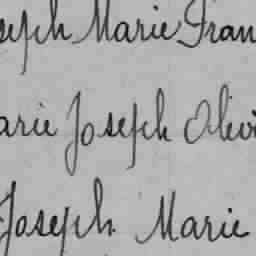 seph Marie Fran
arie Joseph Olivi
Joseph Marie